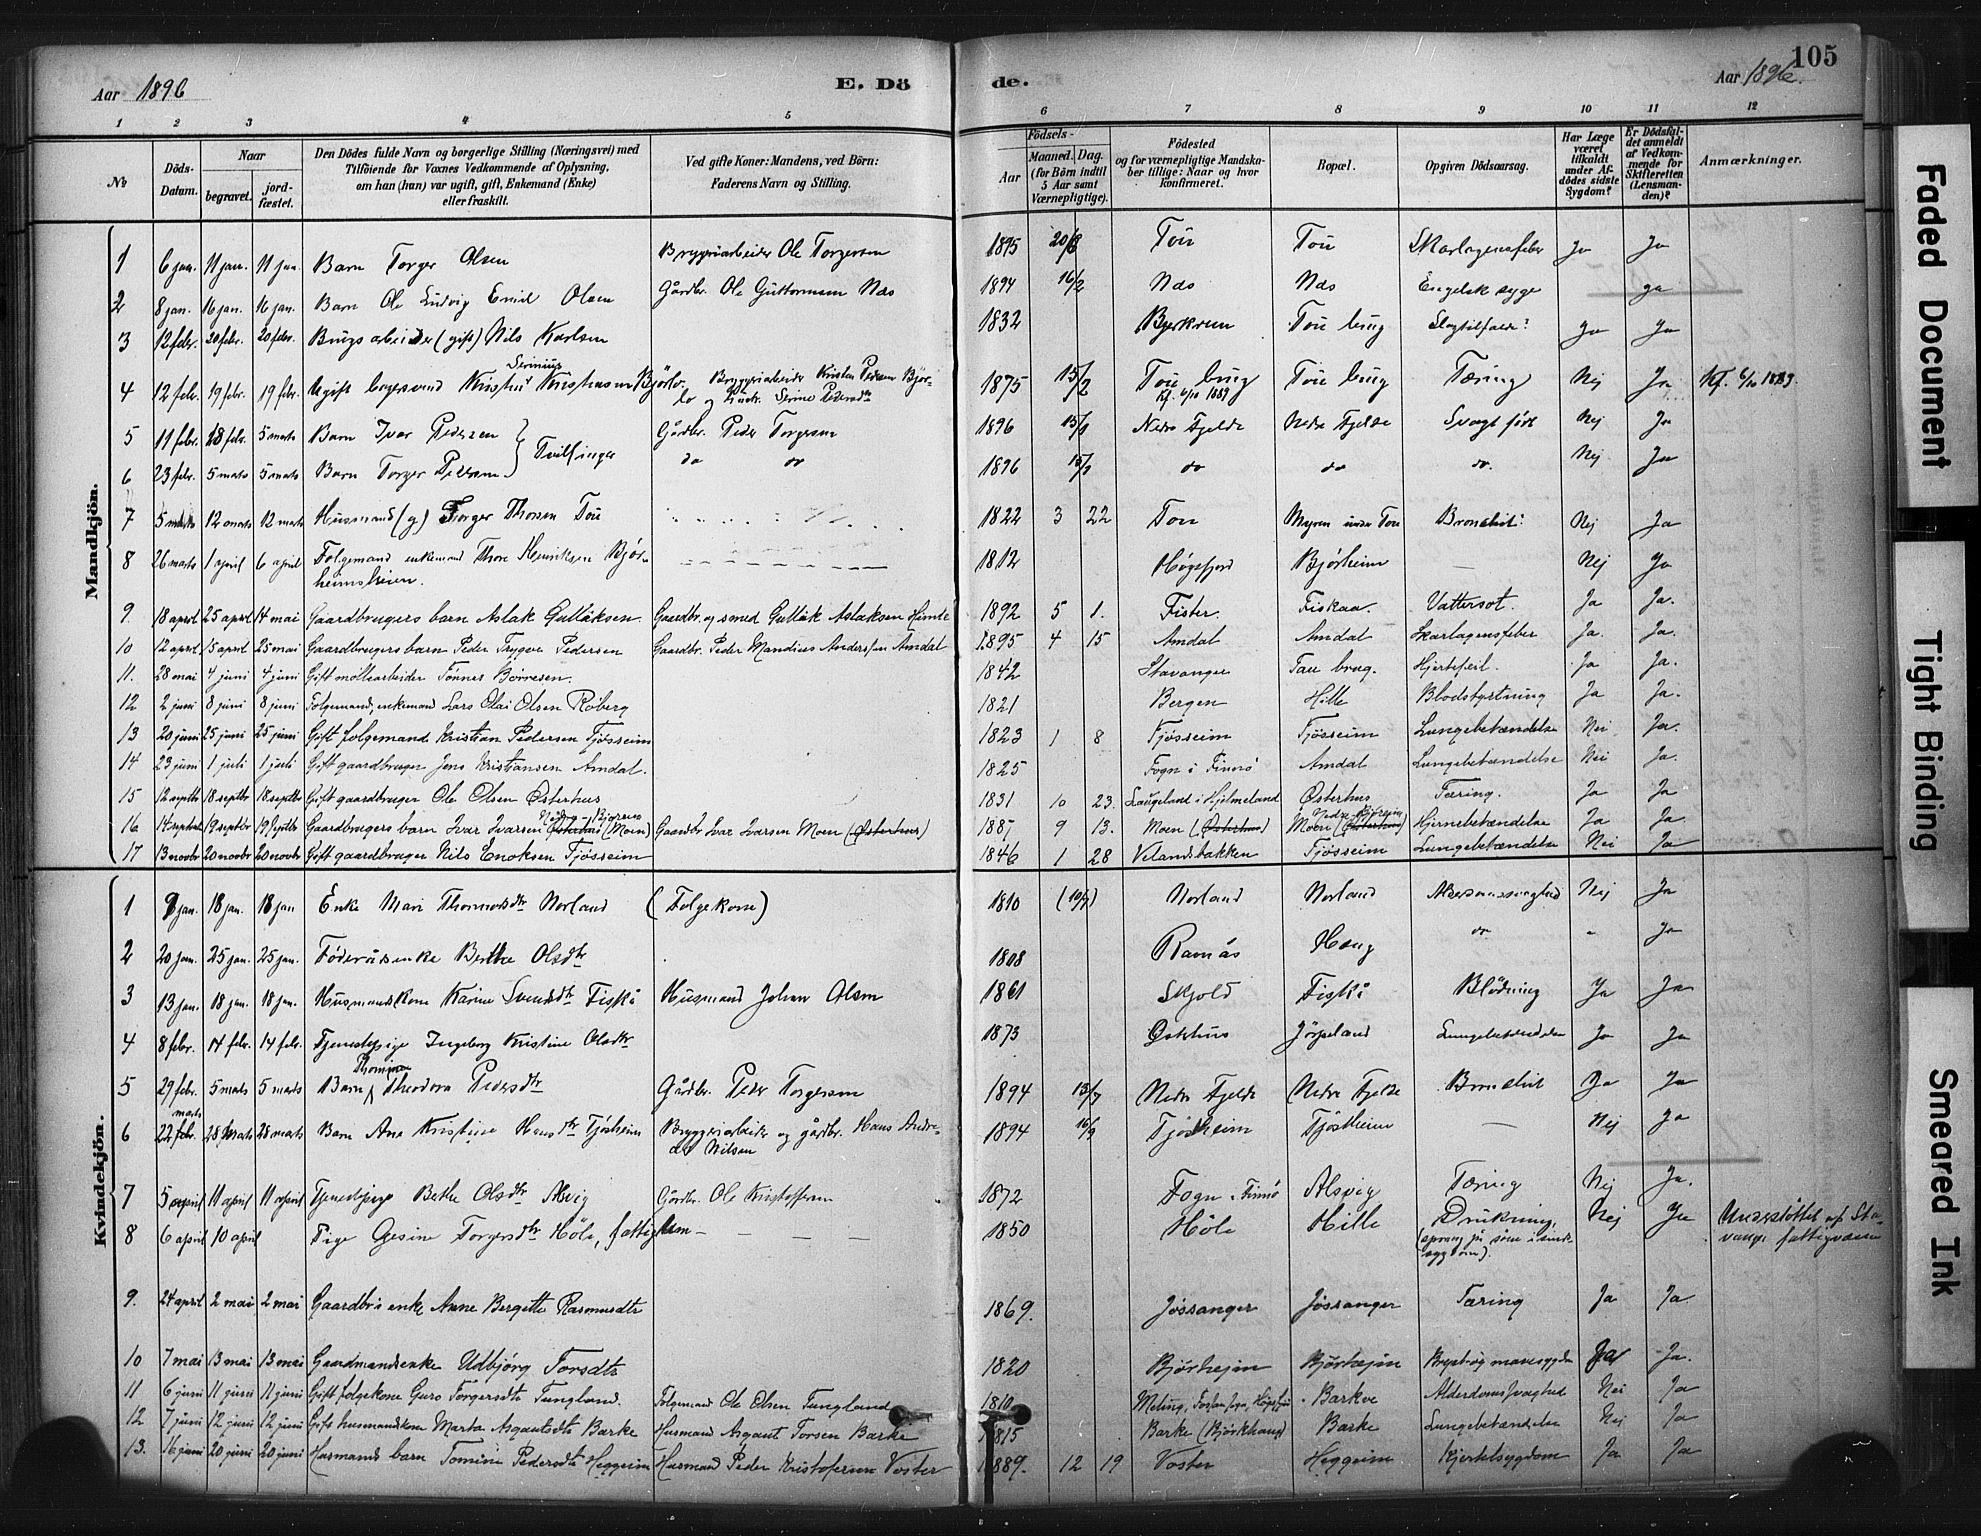 105
Aar 1896
E. Dö
de.
Aar 1896.
1 2 3 4 5 6 7 8 9 10 11 12
No
Döds-Datum.
Naar
begravet.
jord-fæstet.
Den Dödes fulde Navn og borgerlige Stilling (Næringsvei) med
Tilföiende for Voxnes Vedkommende af Oplysning,
om han (hun) var ugift, gift, Enkemand (Enke)
eller fraskilt.
Ved gifte Koner: Mandens, ved Börn:
Faderens Navn og Stilling.
Födsels-
Aar
Maaned. Dag.
(for Börn indtil
5 Aar samt
Værnepligtige).
Födested
og for værnepligtige Mandska-
ber tillige: Naar og hvor
konfirmeret.
Bopæl.
Opgiven Dödsaarsag.
Har Læge
været
tilkaldt
under Af-
dödes sidste
Sygdom?
Er Dödsfal-
det anmeldt
af Vedkom-
mende for
Skifteretten
(Lensman-
den)?
Anmærkninger.
Mandkjön.
1 6 jan. 11 jan. 11 jan. Barn Torger Olsen Bryggeriarbeider Ole Torgersen 1895 20/8 Tou Tou Skarlagensfeber Ja Ja
2 8 jan. 16 jan. 16 jan. Barn Ole Ludvig Emil Olsen Gårdbr. Ole Guttormsen Næs 1894 16/2 Næs Næs Engelsk syge ja
3 12 febr. 20 febr. 20 febr. Brugsarbeider (gift) Nils Karlsen 1832 Bjerkrem Tou brug Slagtilfælde? ja Ja
4 12 febr. 19 febr. 19 febr. Ugift Kristian Bjørlo Bryggeriarbeider Kristen Pedersen Bjør-
lo og Hustr. Serine Pedersdtr 1875 15/2 Tou brug Kf. 6/10 1889 Tou brug Tæring Nej Ja Kf. 6/10 1889.
5 11 febr. 28 febr. 5 marts Barn Ivar Pedersen } Tvillinger Gårdbr. Peder Torgersen 1896 Nedre Fjelde Nedre Fjelde Svagt født Nej Ja
6 23 febr. 5 marts 5 marts Barn Torger Pedersen do do 1896 do do do. Nej Ja
7 5 marts 12 marts 12 marts Husmand (g) Torger Thorsen Tou 1822 3 22 Tou Myren under Tou Bronchit: Nej Ja
8 26 marts 1 april 6 april Folgemand enkemand Thore Henriksen Bjør-
heimsheien. 1812 Høgsfjord Bjørheim — Nej Ja
9. 18 april 25 april 14 mai Gaardbrugers barn Aslak Gulläksen. Gaardbr. og smed Gulläk Aslaksen Himle 1892 5 1. Fister. Fiskaa. Vattersot. Ja Ja.
10 12 april 15 april 25 mai Gaardbrugers barn Peder Trygve Pedersen Gaardbr. Peder Mandius Anderssen Amdal 1895 4 15 Amdal Amdal Skarlagensfeber Ja. Ja.
11. 28 mai 4 juni 4 juni Gift møllearbeider Tønnes Børresen. 1842 Stavanger Tau brug. Hjertefeil. Ja Ja.
12 2 juni 8 juni 8 juni Folgemand, enkemand Lars Olai Olsen Röberg 1821 Bergen Hille Blodstyrtning Ja Ja.
13 20 juni 25 juni 25 juni Gift folgemand Kristian Pedersen Tjøsseim 1823 1 8 Tjøsseim Tjøsseim Lungebetændelse Nei Ja.
14 23 juni 1 juli 1 juli Gift gaardbruger Jens Kristiansen Amdal. 1825 Fogn i Finnø Amdal Lungebetændelse Nei Ja.
15 12 septbr 18 septbr 18 septbr Gift gaardbruger Ole Olsen Østerhus 1831 10 23. Laugeland i Hjelmeland Østerhus Tæring. Ja Ja
16 14 septbr 19 septbr 19 septbr Gaardbrugers barn Ivar Ivarsen Østerhus (Moen) Gaardbr Ivar Ivarsen Moen (Østerhus) 1887 9 13. Moen (Østerhus) Moen (Østerhus) Hjernebetændelse Ja Ja.
17 13 novbr 20 novbr 20 novbr Gift gaardbruger Nils Enoksen Tjøsseim 1846 1 28 Velandsbakken Tjøsseim Lungebetændelse Nei Ja
Kvindekjön.
1 9 jan. 18 jan. 18 jan Enke Mari Thormodsdtr Norland (Folgekone) 1810 (10/7) Norland Norland Alderdomssvaghed Nej Ja
2 20 jan. 25 jan. 25 jan. Føderådsenke Berthe Olsdtr 1808 Ramås Haug do " Ja
3 13 jan. 18 jan. 18 jan. Husmandskone Karine Svendsdtr Fiskå Husmand Johan Olsen 1861 Skjold Fiskå Blödning Ja Ja
4 8 febr. 14 febr. 14 febr. Tjenestepige Ingeborg Kristine Olsdtr 1873 Østerhus Jørpeland Lungebetændelse Ja Ja
5 29 febr. 5 marts 5 marts Barn Thomine Theodora Pedersdtr Gårdbr. Peder Torgersen 1894 13/7 Nedre Fjelde Nedre Fjelde Bronchit Ja Ja
6 22 febr. marts 28 marts 28 marts Barn Ane Kristine Hansdtr Tjøsheim Bryggeriarbeider og gårdbr. Hans Andre-
as Nilsen 1894 16/9 Tjøsheim Tjøstheim — Nej Ja
7 5 april 11 april 11 april Tjenestepige Berthe Olsdtr Alsvig Gårdbr. Ole Kristoffersen 1872 Fogn i Finnø Alsvig Tæring Nej Ja.
8 6 april 10 april Pige Gesine Torgersdtr Høle, fattiglem — 1850 Høle Hille Drukning, (sprang på søen i sinds-
sygdom). Nej Ja Understøttet af Sta-
vanger fattigvæsen
9. 24 april 2 mai 2 mai Gaardbr's enke Anne Bergitte Rasmusdtr 1869. Jøssanger Jøssanger Tæring Ja Ja.
10 7 mai 13 mai 13 mai Gaardmandsenke Udbjörg Torsdtr 1820 Bjørhejm Bjørhejm Ja Ja.
11 6 juni 11 juni 11 juni Gift folgekone Guro Torgersdtr Tungland. Folgemand Ole Olsen Tungland 1810 Meling, Høgsfjord Barkve Alderdomssvaghed Nei Ja
12 7 juni 12 juni 12 juni Gift husmandskone Marta Asgautsdtr Barke Husmand Asgaut Torsen Barke 1815 Barke (Bjørkhaug) Barke Lungebetændelse Nej Ja
13. 16 juni 20 juni 20 juni Husmands barn Tomine Pedersdtr Heggeim Husmand Peder Kristofersen Voster 1889. 12 19 Voster Heggeim Kjertelsygdom Ja Ja
Faded Document
Tight Binding
Smeared Ink